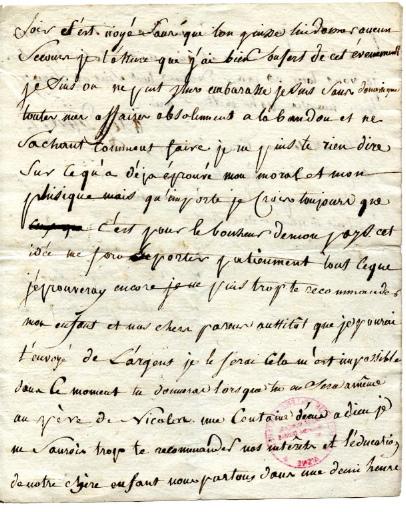 soir et s'est noyé sans que l'on puisse lui donner aucun
secours je t'assure que j'ai bien soufert de cet evenement
je suis on ne peut plus embarassé je suis sans domestique
toutes mes affaires absolument a labandon et ne
sachant comment faire je ne puis te rien dire
sur ce qu'a déja éprouvé mon moral et mon
phisique mais qu'importe je crois toujours que
c'est pour le bonheur de mon pays cet
idée me fera suporter patiemment tout ce que
j'eprouveray encore je ne puis trop te recommander
mon enfant et nos chers parens aussitôt que je pourai
t'envoyé de l'argent je le ferai cela m'est impossible
dans ce moment tu donneras lorsque tu en seras a même
au père de Nicolas une centaine d'écus adieu je
ne saurois trop te recommander nos intérêts et l'éducation
de notre chère enfant nous partons dans une demi heure